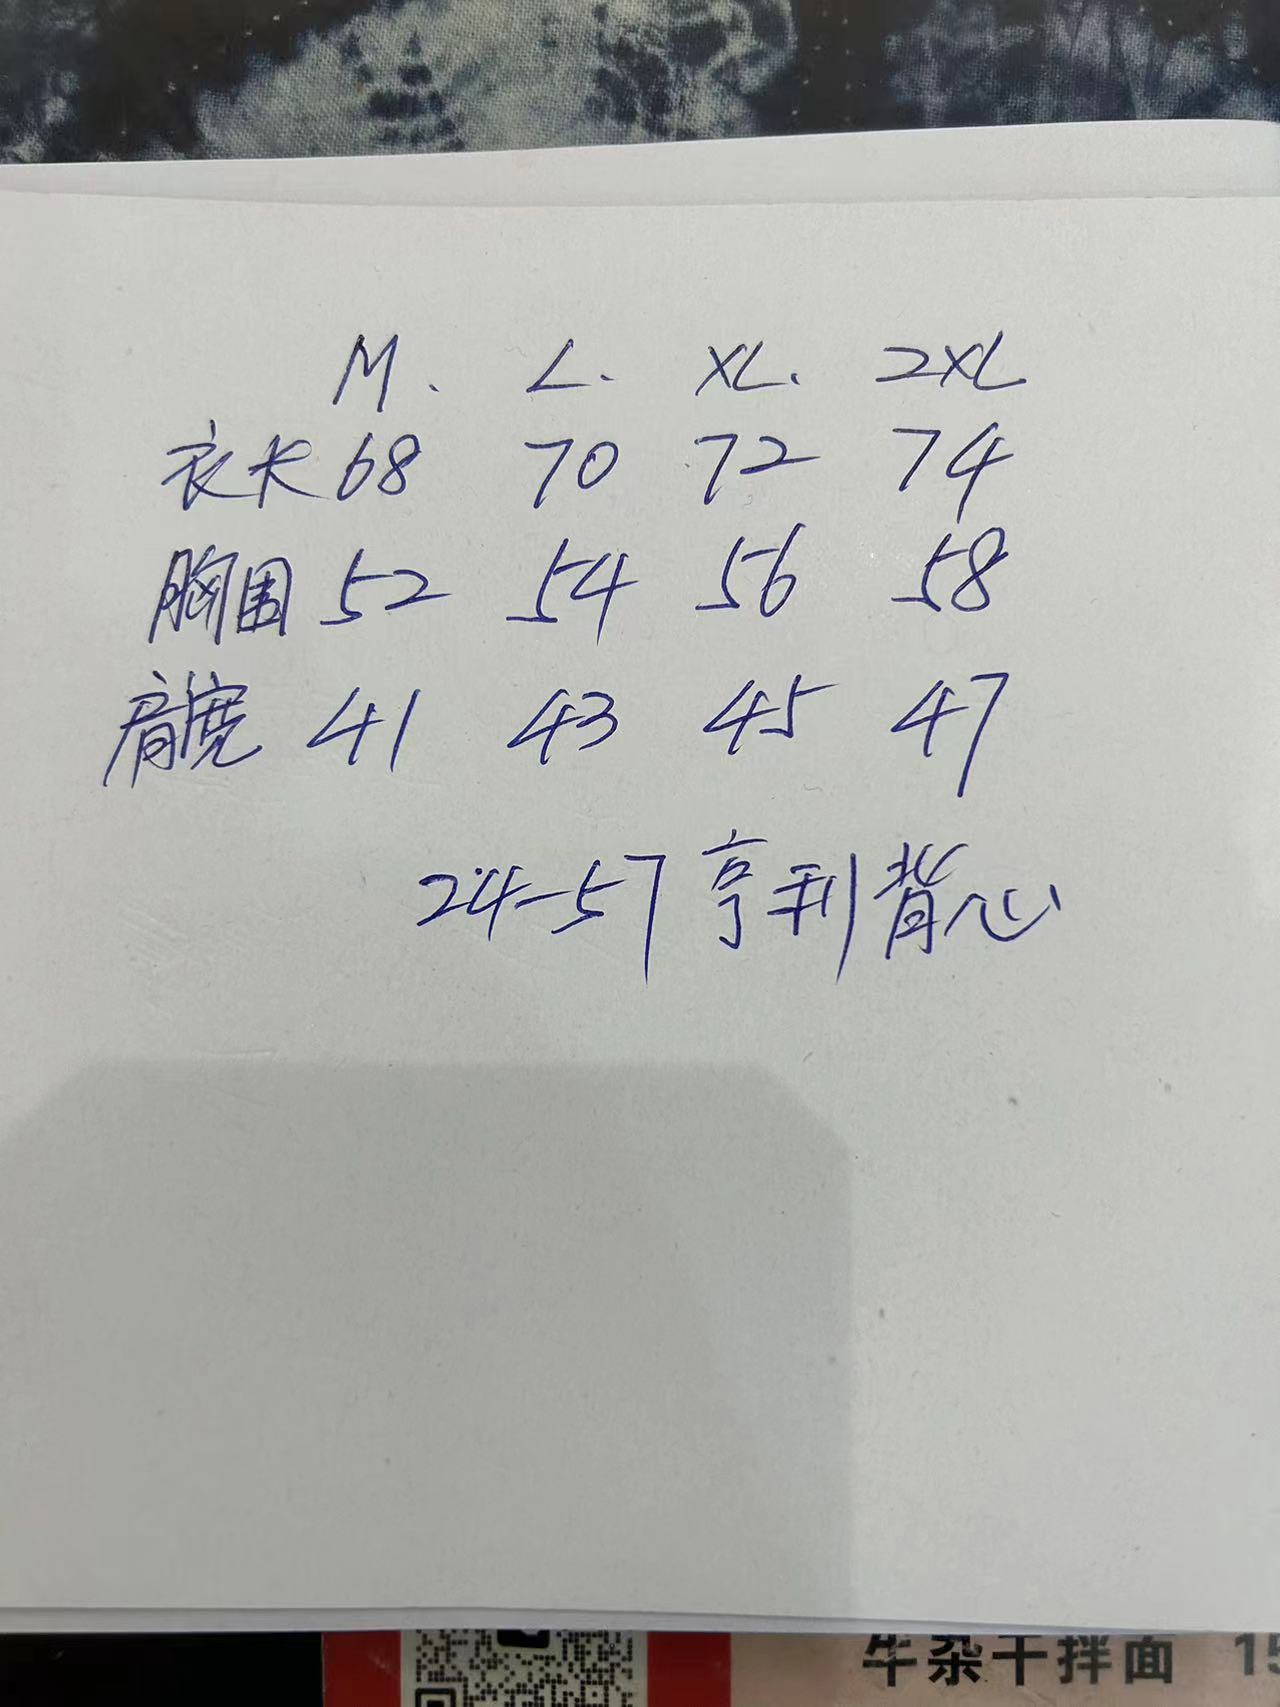 M. L. XL. 2XL
衣长 68 70 72 74
胸围 52 54 56 58
肩宽 41 43 45 47
24-57 亨利背心
牛杂干拌面 15